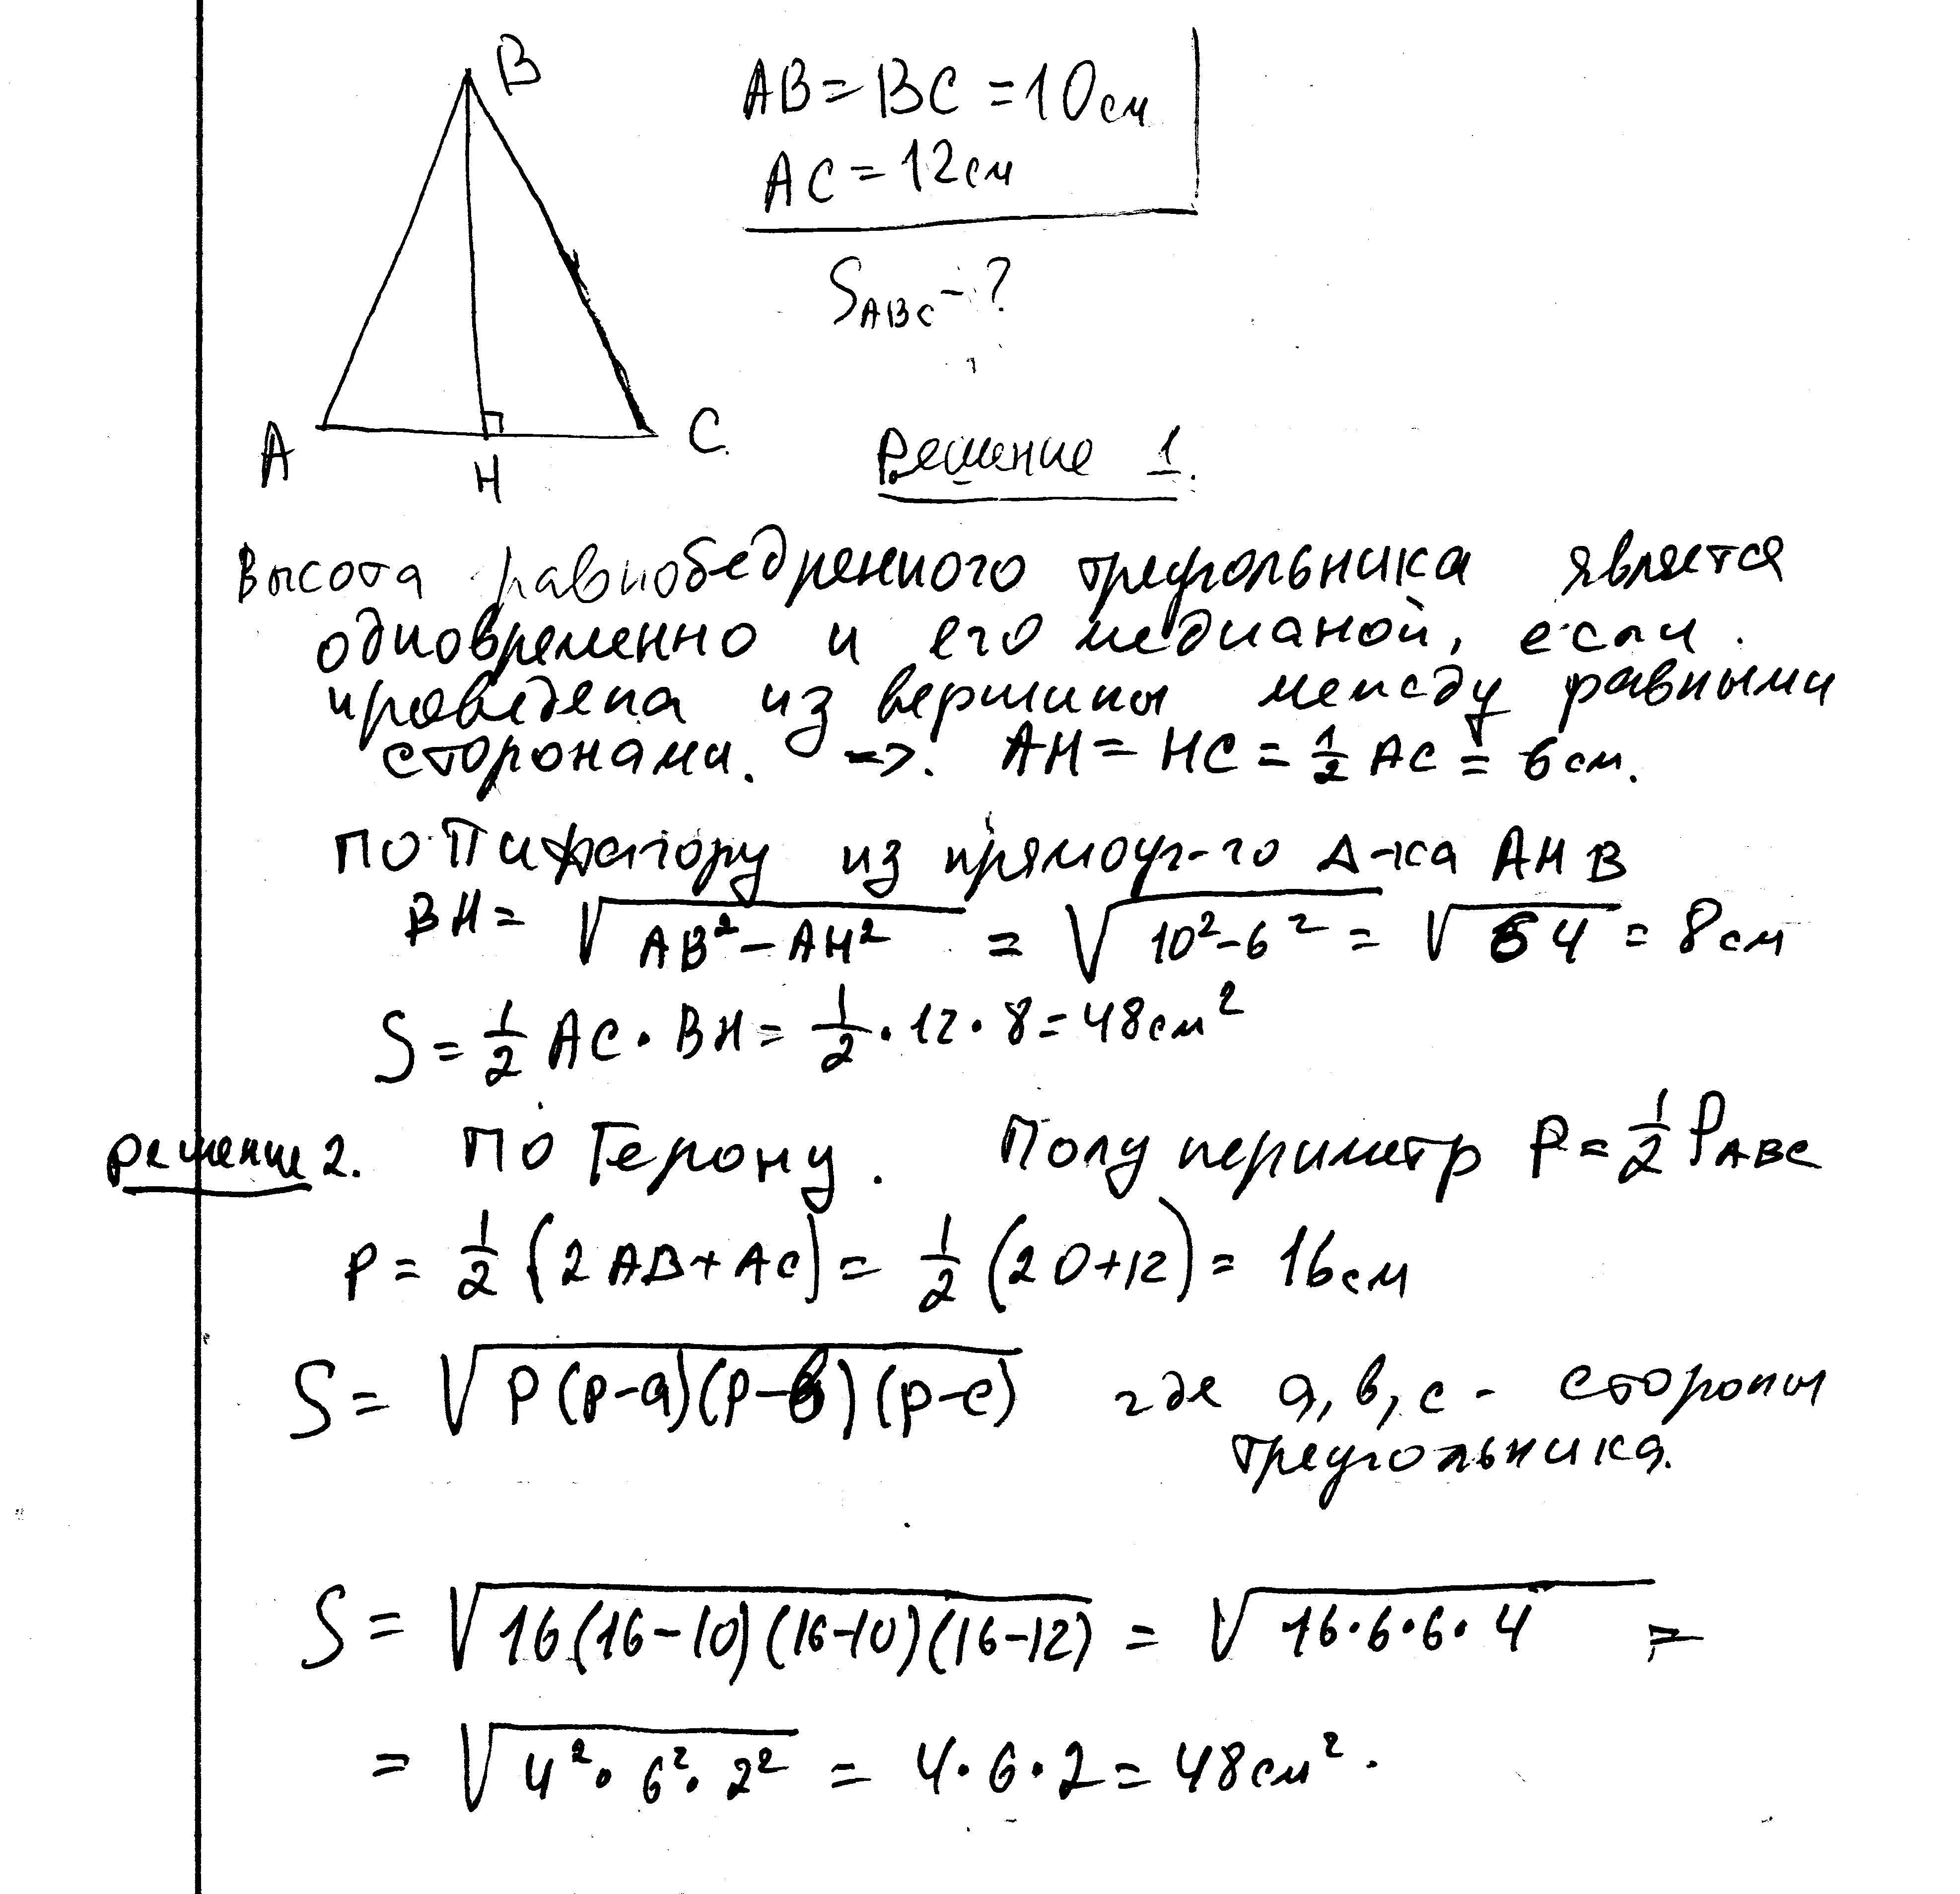 B
AB = BC = 10см
AC = 12см
S_ABC - ?
A
H
C
Решение 1.
Высота равнобедренного треугольника является
одновременно и его медианой, если
проведена из вершины между равными
сторонами. => AH = HC = 1/2 AC = 6см.
По Пифагору из прямоуг-го Δ-ка AHB
BH = √(AB² - AH²) = √(10² - 6²) = √64 = 8см
S = 1/2 AC · BH = 1/2 · 12 · 8 = 48см²
Решение 2. По Герону. Полупериметр p = 1/2 P_ABC
p = 1/2 (2AB + AC) = 1/2 (20 + 12) = 16см
S = √(p(p-a)(p-b)(p-c)) где a, b, c - стороны
треугольника.
S = √(16(16-10)(16-10)(16-12)) = √(16·6·6·4) =
= √(4² · 6² · 2²) = 4·6·2 = 48см².